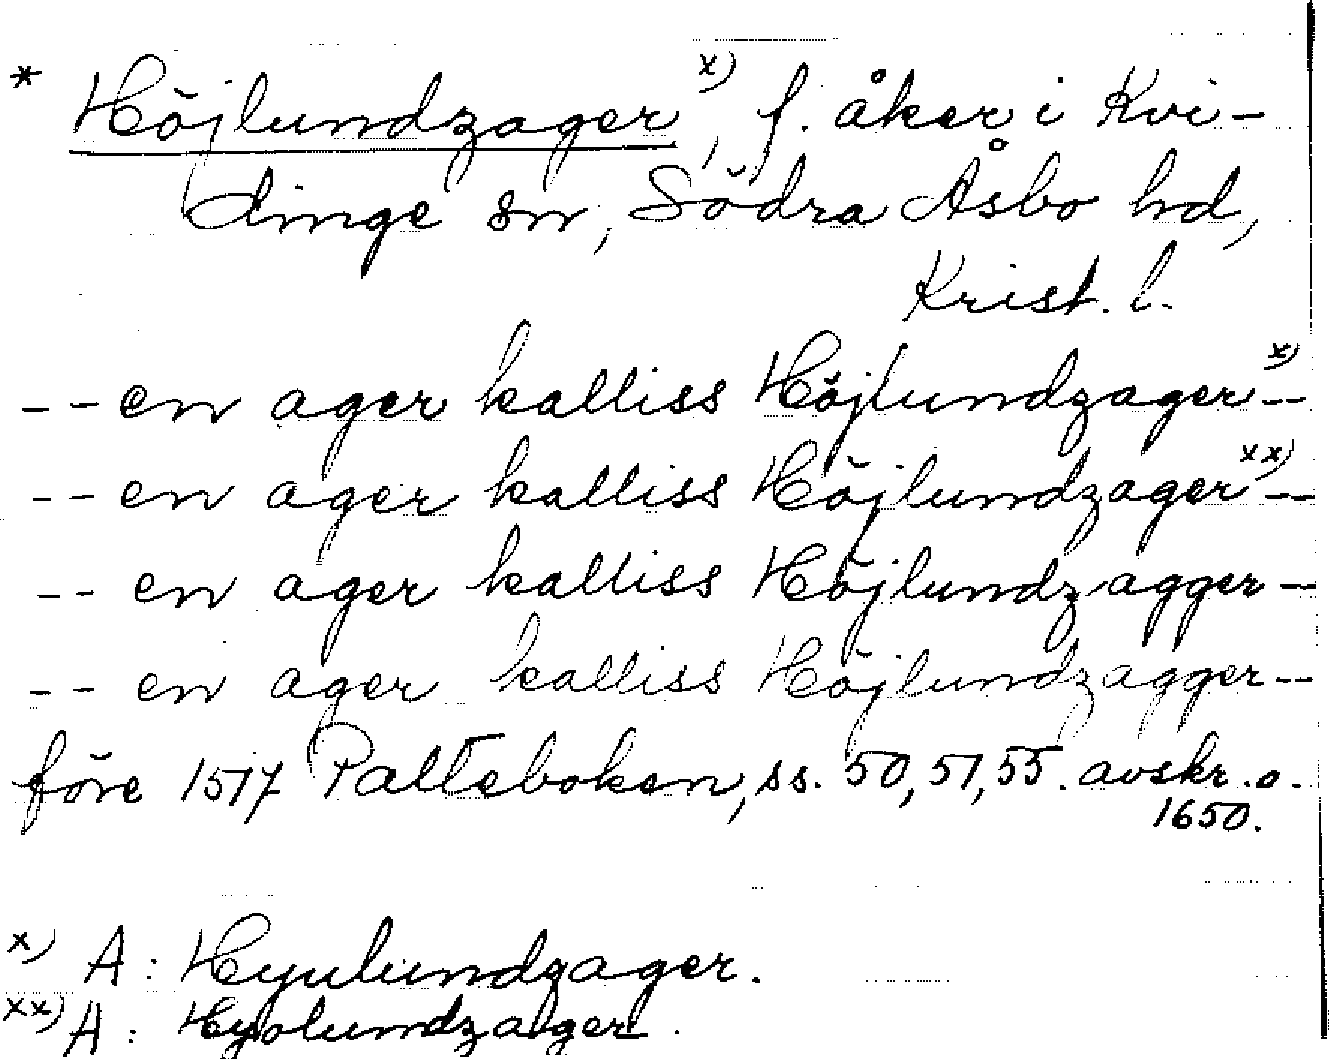 * Höjlundzager x), f. åker i Kvi-
dinge sn, Södra Åsbo hd,
Krist. l.
-- en ager kalliss Höjlundzager x) --
-- en ager kalliss Höjlundzager xx) --
-- en ager kalliss Höjlundzagger --
-- en ager kalliss Höjlundzagger --
före 1517 Palteboken, ss. 50, 51, 55. avskr. o.
1650.
x) A: Hyulundzager.
xx) A: Hyolundzager.